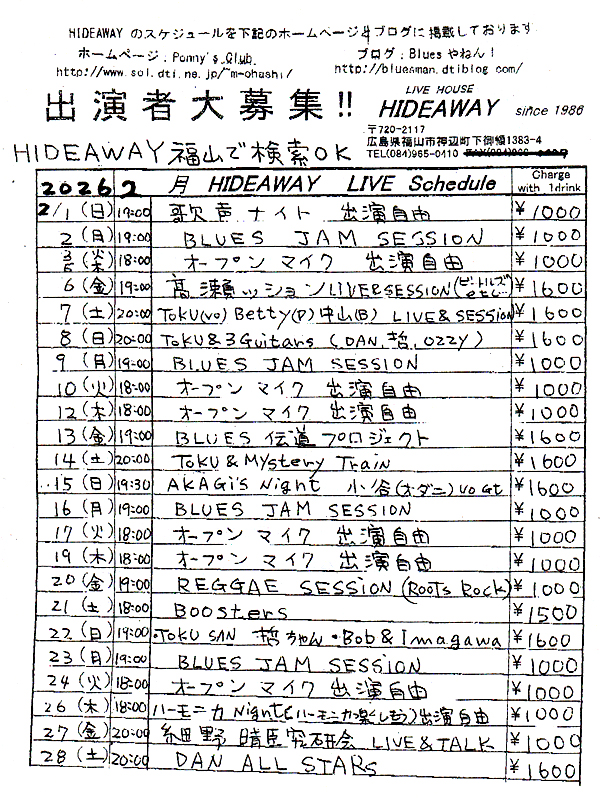 HIDEAWAY のスケジュールを下記のホームページ&ブログに掲載しております
ホームページ:Ponny's Club
ブログ:Blues やねん!
http://www.sol.dti.ne.jp/~m-ohashi/
http://bluesman.dtiblog.com/
出演者大募集!!
LIVE HOUSE
HIDEAWAY since 1986
〒720-2117
広島県福山市神辺町下御領1383-4
TEL(084)965-0410
HIDEAWAY 福山で検索OK
2026 2 月 HIDEAWAY LIVE Schedule Charge with 1drink
2/1 (日) 19:00 歌声ナイト 出演自由 ¥1000
2 (月) 19:00 BLUES JAM SESSION ¥1000
3 (火) 5 (木) 18:00 オープン マイク 出演自由 ¥1000
6 (金) 19:00 高瀬ッション LIVE&SESSION ¥1600
7 (土) 20:00 TOKU(vo) Betty(P) 中山(B) LIVE & SESSION ¥1600
8 (日) 20:00 TOKU & 3Guitars (DAN, 哲, OZZY) ¥1600
9 (月) 19:00 BLUES JAM SESSION ¥1000
10 (火) 18:00 オープン マイク 出演自由 ¥1000
12 (木) 18:00 オープン マイク 出演自由 ¥1000
13 (金) 19:00 BLUES 伝道 プロジェクト ¥1600
14 (土) 20:00 TOKU & MYstery Train ¥1600
15 (日) 19:30 AKAGi's Night 小谷(オダニ) Vo Gt ¥1600
16 (月) 19:00 BLUES JAM SESSION ¥1000
17 (火) 18:00 オープン マイク 出演自由 ¥1000
19 (木) 18:00 オープン マイク 出演自由 ¥1000
20 (金) 19:00 REGGAE SESSION (Roots Rock) ¥1000
21 (土) 18:00 Boosters ¥1500
22 (日) 19:00 TOKU SAN 哲ちゃん・Bob & Imagawa ¥1600
23 (月) 19:00 BLUES JAM SESSION ¥1000
24 (火) 18:00 オープン マイク 出演自由 ¥1000
26 (木) 18:00 ハーモニカ Night (ハーモニカ楽しもう) 出演自由 ¥1000
27 (金) 20:00 細野晴臣究研会 LIVE & TALK ¥1000
28 (土) 20:00 DAN ALL STARS ¥1600